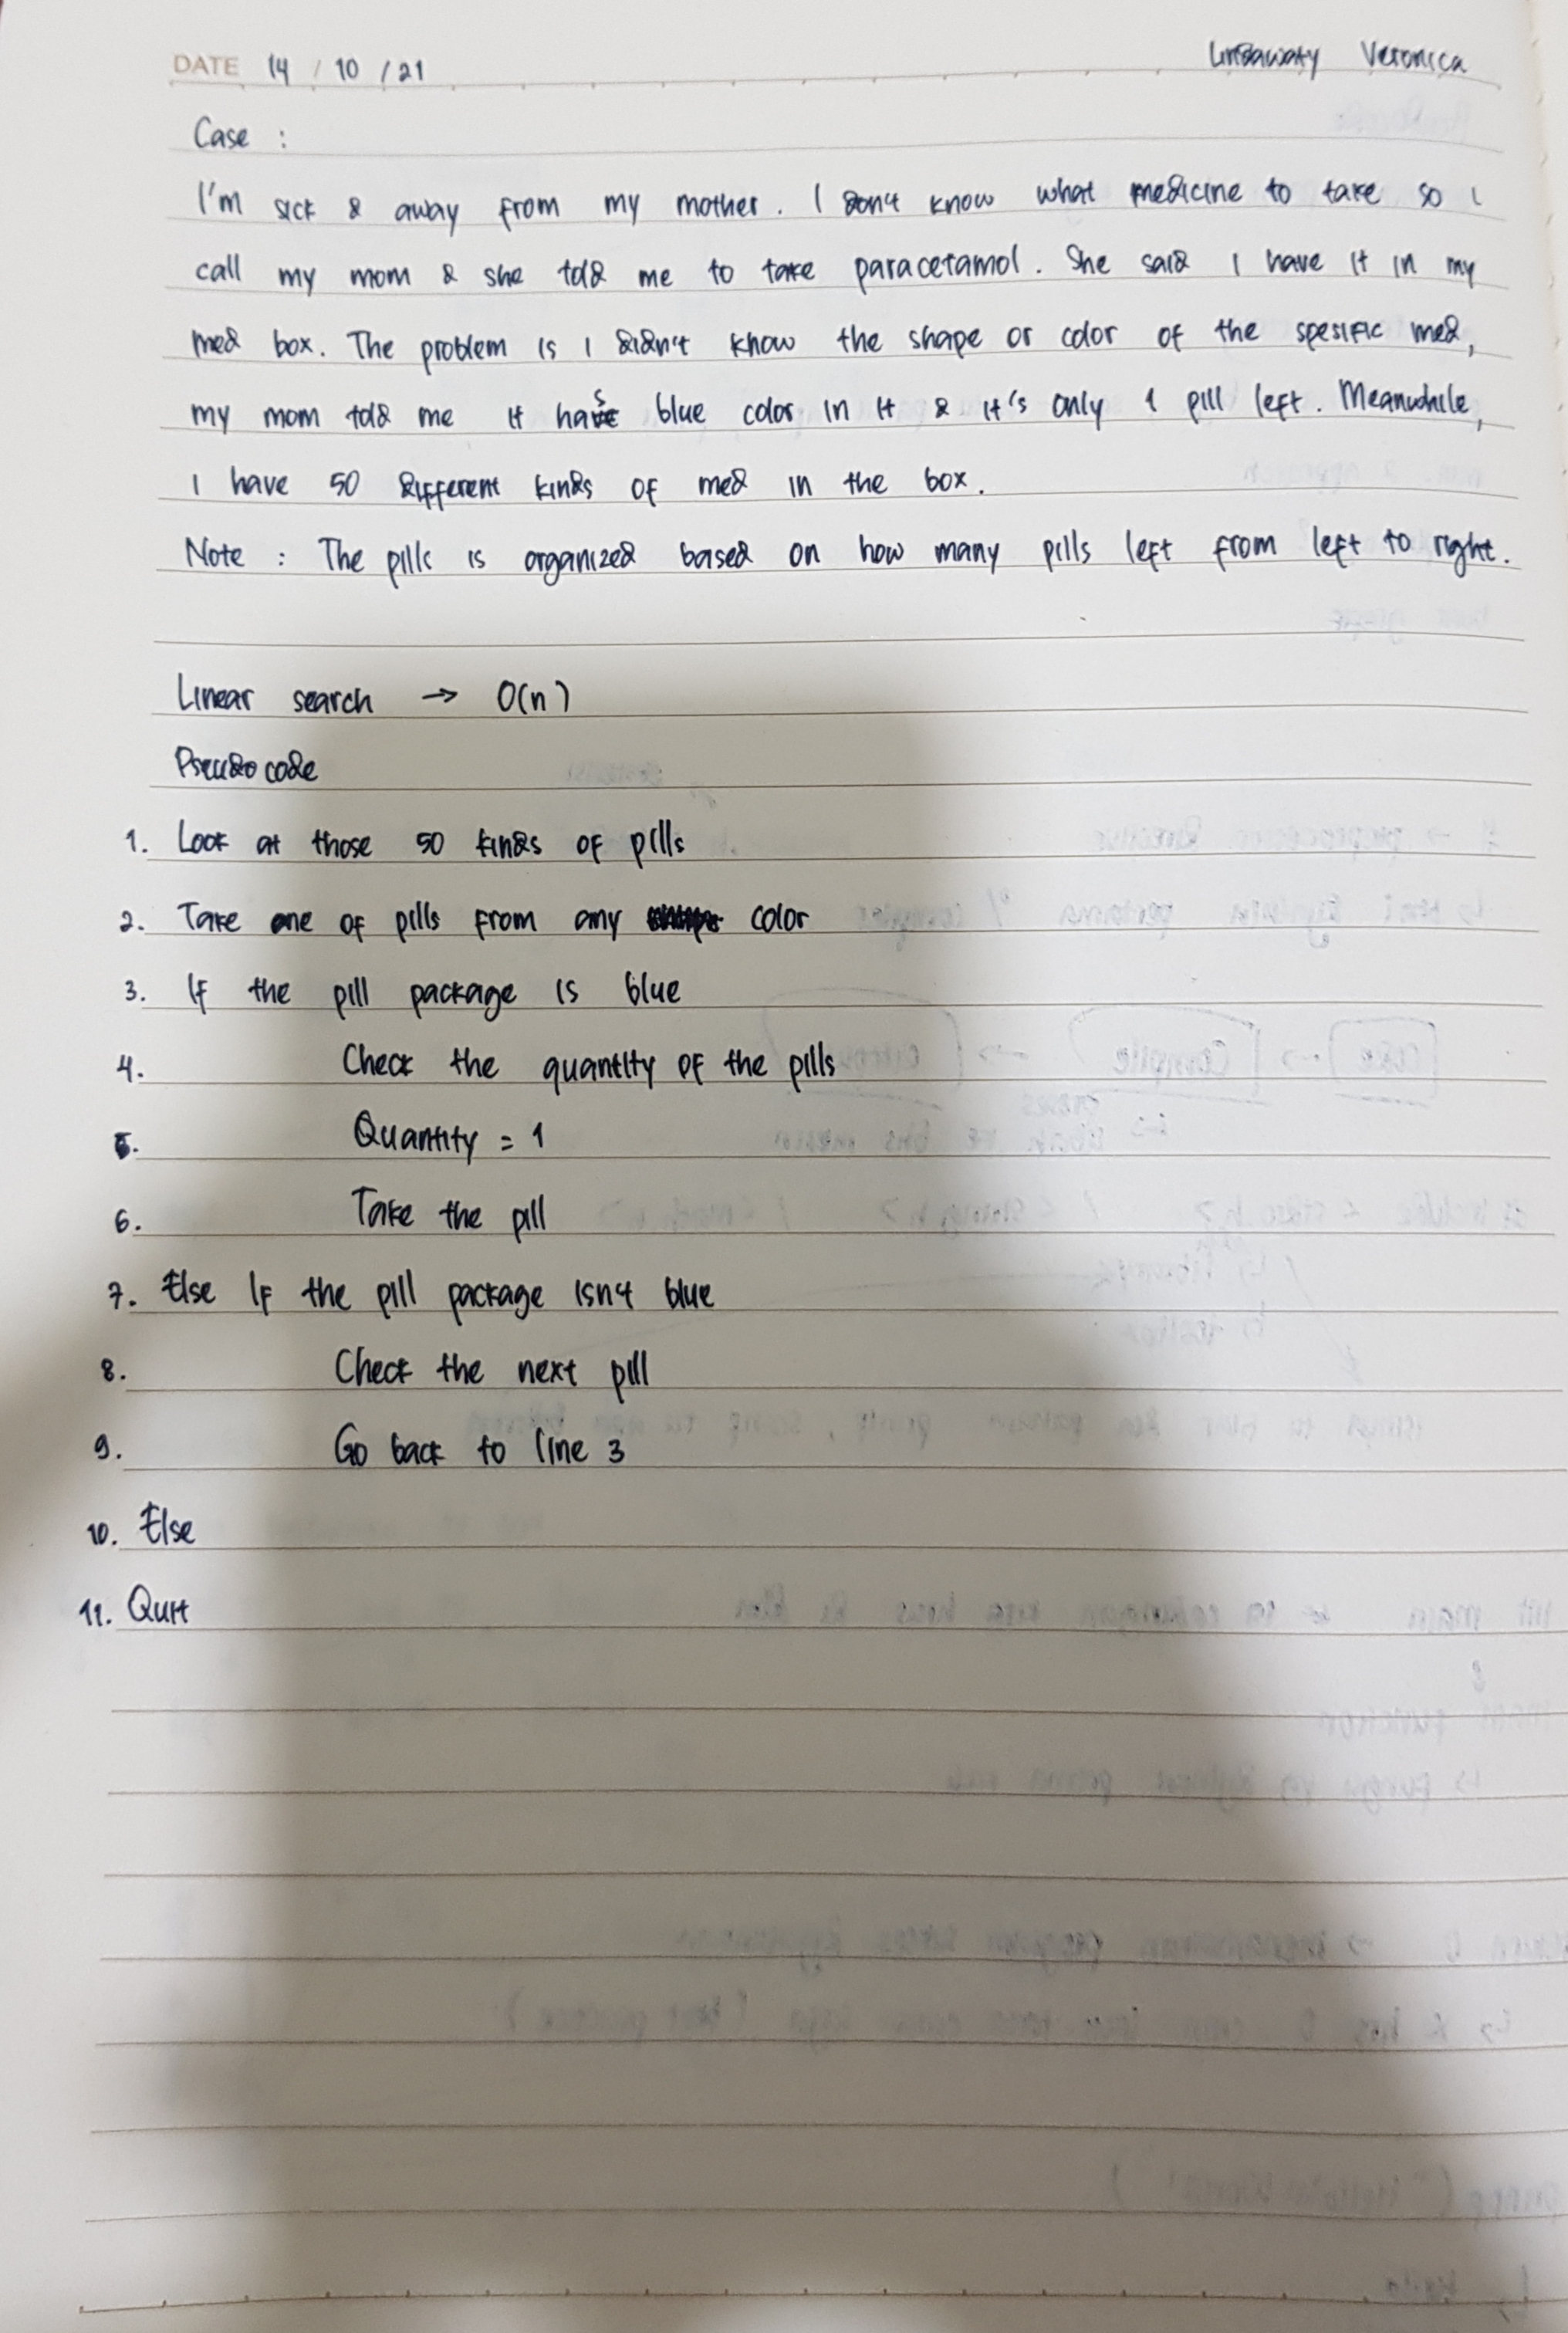 DATE 14 / 10 / 21 Veronica
Case :
I'm sick & away from my mother. I don't know what medicine to take so I
call my mom & she told me to take paracetamol. She said I have it in my
med box. The problem is I didn't know the shape or color of the spesific med,
my mom told me it has blue color in it & it's only 1 pill left. Meanwhile,
I have 50 different kinds of med in the box.
Note : The pills is organized based on how many pills left from left to right.
Linear search → O(n)
Pseudocode
1. Look at those 50 kinds of pills
2. Take one of pills from any color
3. If the pill package is blue
4. Check the quantity of the pills
5. Quantity = 1
6. Take the pill
7. Else If the pill package isn't blue
8. Check the next pill
9. Go back to line 3
10. Else
11. Quit